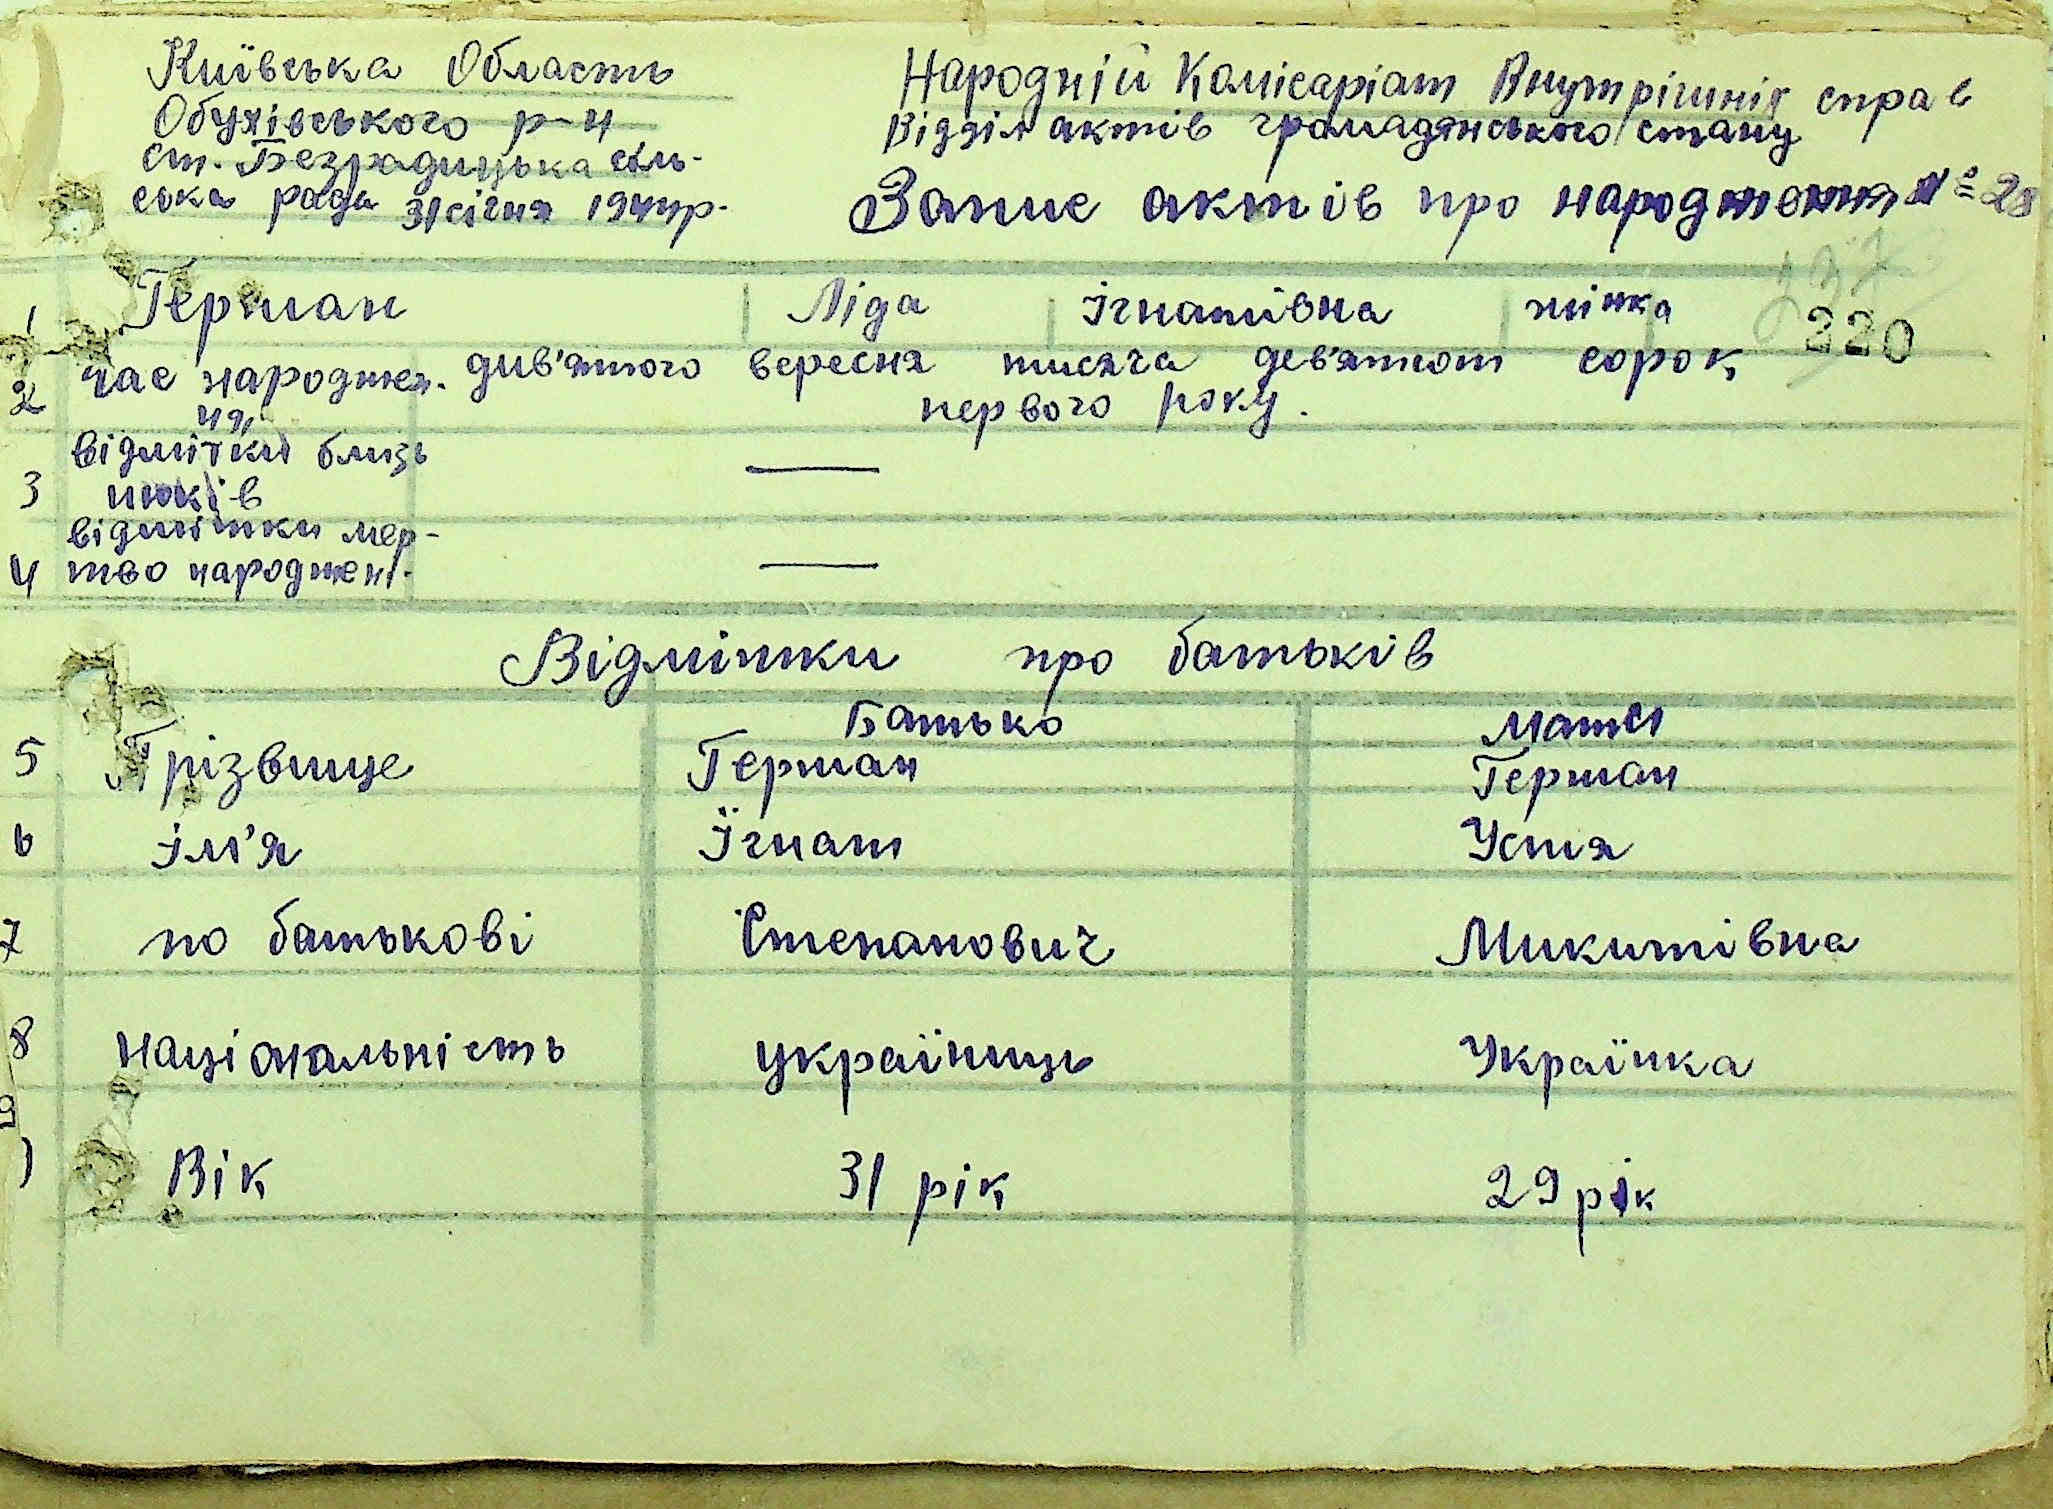 Київська Область
Обухівського р-н
ст. Безрадицька сіль-
ська рада 31 січня 1944 р.
Народній Комісаріат Внутрішніх справ
Відділ актів громадянського стану
Запис актів про народження № 28
1 Герман Ліда Ігнатівна жінка
220
2 час народжен- див'ятого вересня тисяча дев'ятот сорок
ня, первого року.
відмітки близь
3 нюків —
відмітки мер-
4 тво народжен. —
Відмітки про батьків
Батько мати
5 Прізвище Герман Герман
6 ім'я Їгнат Устя
7 по батькові Степанович Микитівна
8 національність українць Українка
Вік 31 рік 29 рік